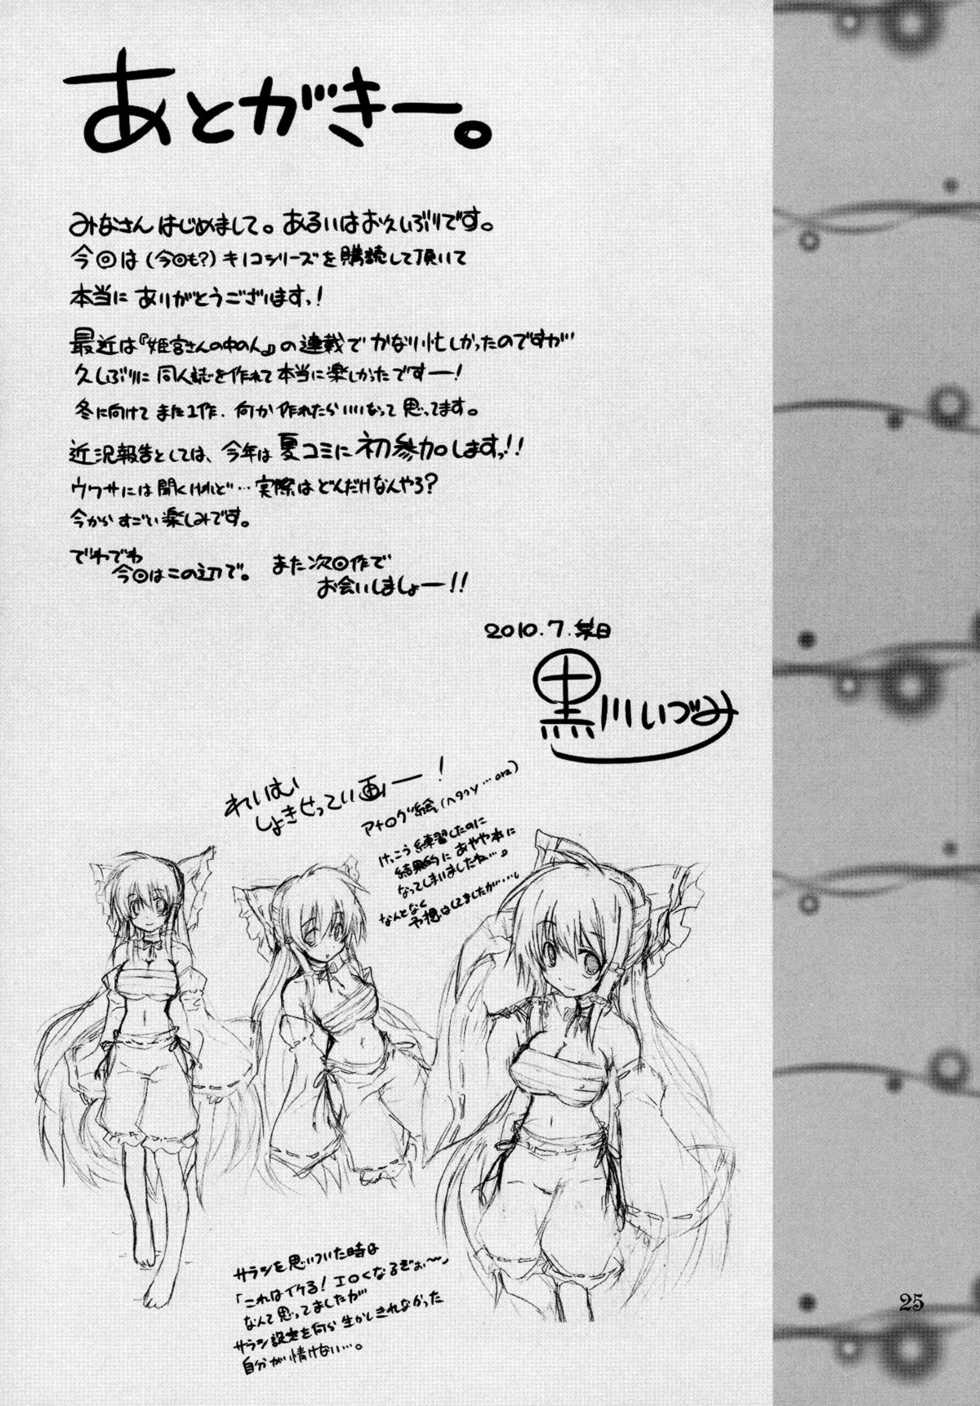 あとがきー。
みなさんはじめまして。あるいはお久しぶりです。
今回は(今回も?)キノコシリーズを購読して頂いて
本当にありがとうございますっ!
最近は『姫宮さんの中の人』の連載でかなり忙しかったのですが
久しぶりに同人誌を作れて本当に楽しかったですー!
冬に向けてまた1作、何か作れたらいいなって思ってます。
近況報告としては、今年は夏コミに初参加しますっ!!
ウワサには聞くけれど…実際はどんだけなんやろ?
今からすごい楽しみです。
でわでわ
今回はこの辺で。また次回作で
お会いしましょー!!
2010.7.某日
黒川いづみ
れいむぃ
しょきせってい画ー!
アナログ絵(ヘタクソ…orz)
けっこう練習したのに
結果的にあやや本に
なってしまいましたね…。
なんとなく
予想はしてましたが…。
サラシを思いついた時は
「これはイケる!エロくなるぞぉ〜」
なんて思ってましたが
サラシ設定を何ら生かしきれなかった
自分が情けない…。
25